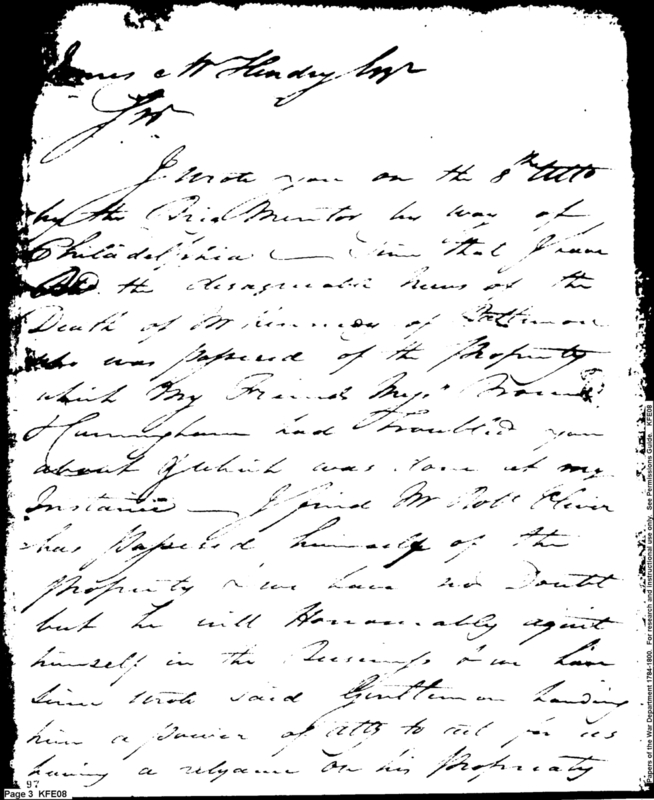 James McHendry Esqr
Sir
I wrote you on the 8th Ulto
by the Brig Mentor by way of
Philadelphia — Since that I have
the disagreeable News of the
Death of Mr Kennedy of Baltimore
who was possessed of the Property
which My Friends Mess" Brown
& Cunningham had Troubled you
about & which was done at my
Instance — I find Mr Robt Oliver
has possessed himself of the
Property & we have no Doubt
but he will Honourably aquit
himself in the Business & we have
since wrote said Gentleman handing
him a power of atty to act for us
having a relyance on his Propriety
97
Page 3 KFE08
Papers of the War Department 1784-1800. For research and instructional use only. See Permissions Guide. KFE08